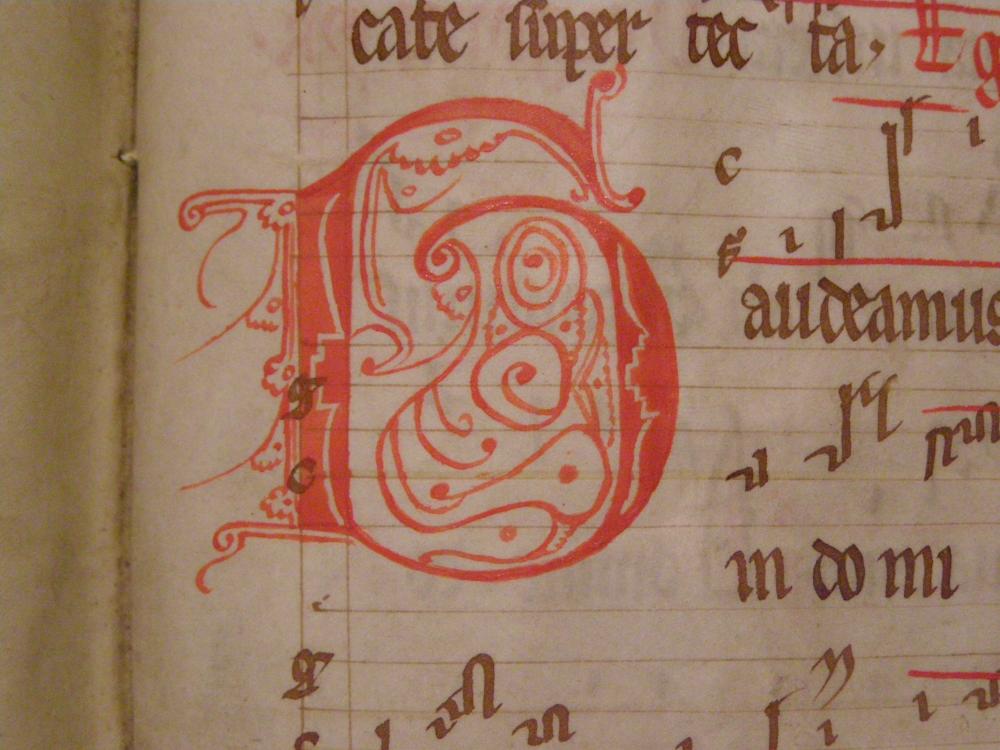 cate super tec ta,
Gaudeamus
in do mi